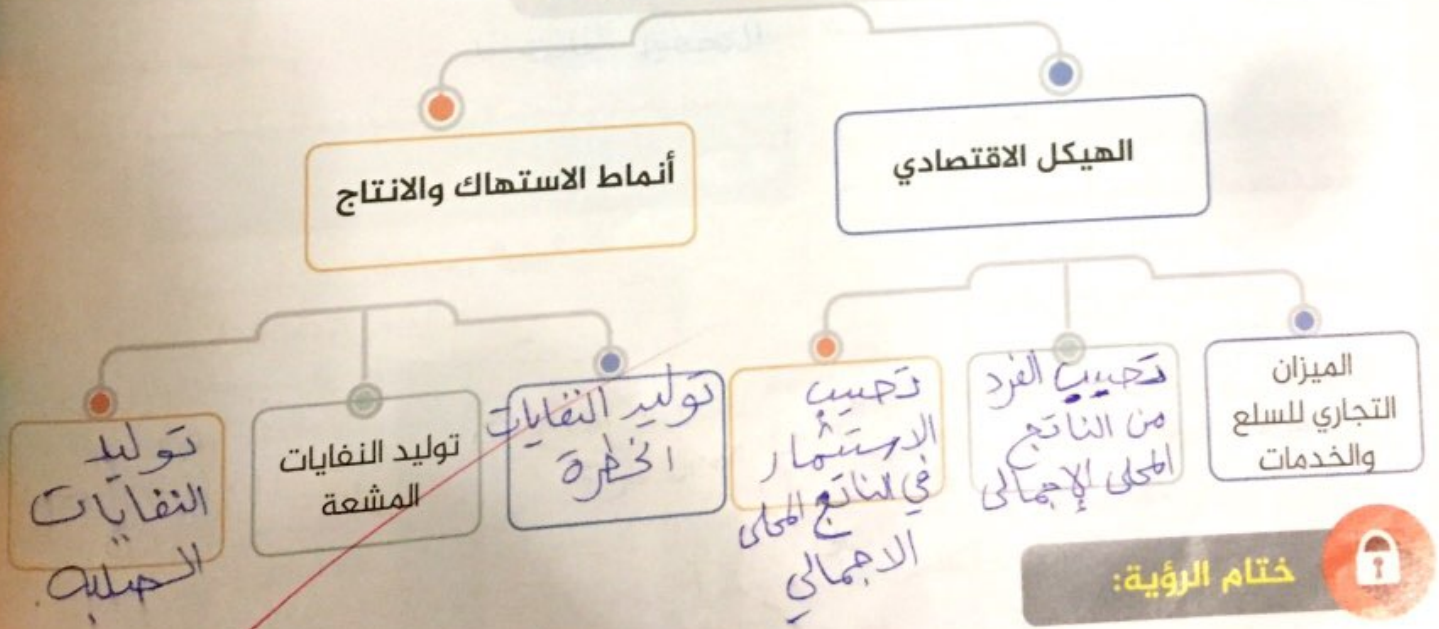 الهيكل الاقتصادي
أنماط الاستهاك والانتاج
الميزان
التجاري للسلع
والخدمات
نصيب الفرد
من الناتج
المحلى الإجمالى
نصيب
الاستثمار
في الناتج المحلى
الاجمالي
توليد النفايات
الخطرة
توليد النفايات
المشعة
توليد
النفايات
الصلبه
ختام الرؤية: